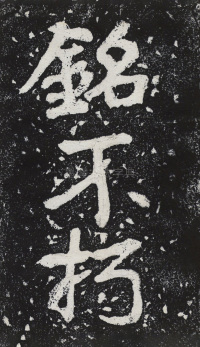 銘不朽